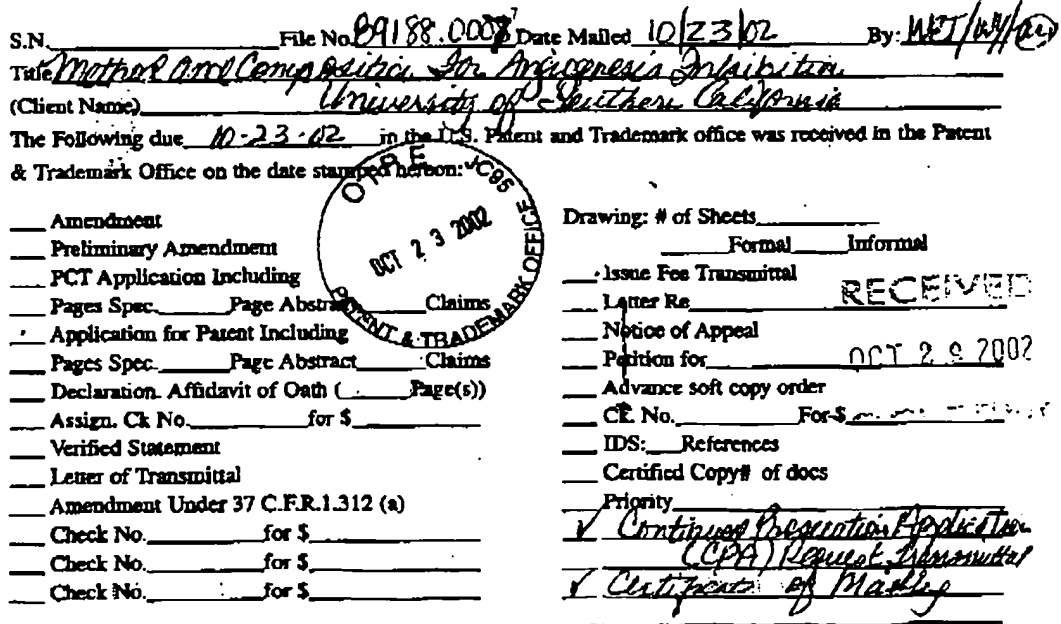 S.N. File No. 89188.0007 Date Mailed 10/23/02 By: WET/
Title Method and Composition For Angiogenesis Inhibition
(Client Name) University of Southern California
The Following due 10-23-02 in the U.S. Patent and Trademark office was received in the Patent
& Trademark Office on the date stamped hereon:
O I P E JC95
OCT 2 3 2002
PATENT & TRADEMARK OFFICE
Amendment
Preliminary Amendment
PCT Application Including
Pages Spec. Page Abstract Claims
Application for Patent Including
Pages Spec. Page Abstract Claims
Declaration. Affidavit of Oath ( Page(s))
Assign. Ck No. for $
Verified Statement
Letter of Transmittal
Amendment Under 37 C.F.R.1.312 (a)
Check No. for $
Check No. for $
Check No. for $
Drawing: # of Sheets
Formal Informal
Issue Fee Transmittal
Letter Re
RECEIVED
Notice of Appeal
Petition for
OCT 2 9 2002
Advance soft copy order
CK. No. For $
IDS: References
Certified Copy# of docs
Priority
✓ Continued Prosecution Application
(CPA) Request Transmittal
✓ Certificate of Mailing